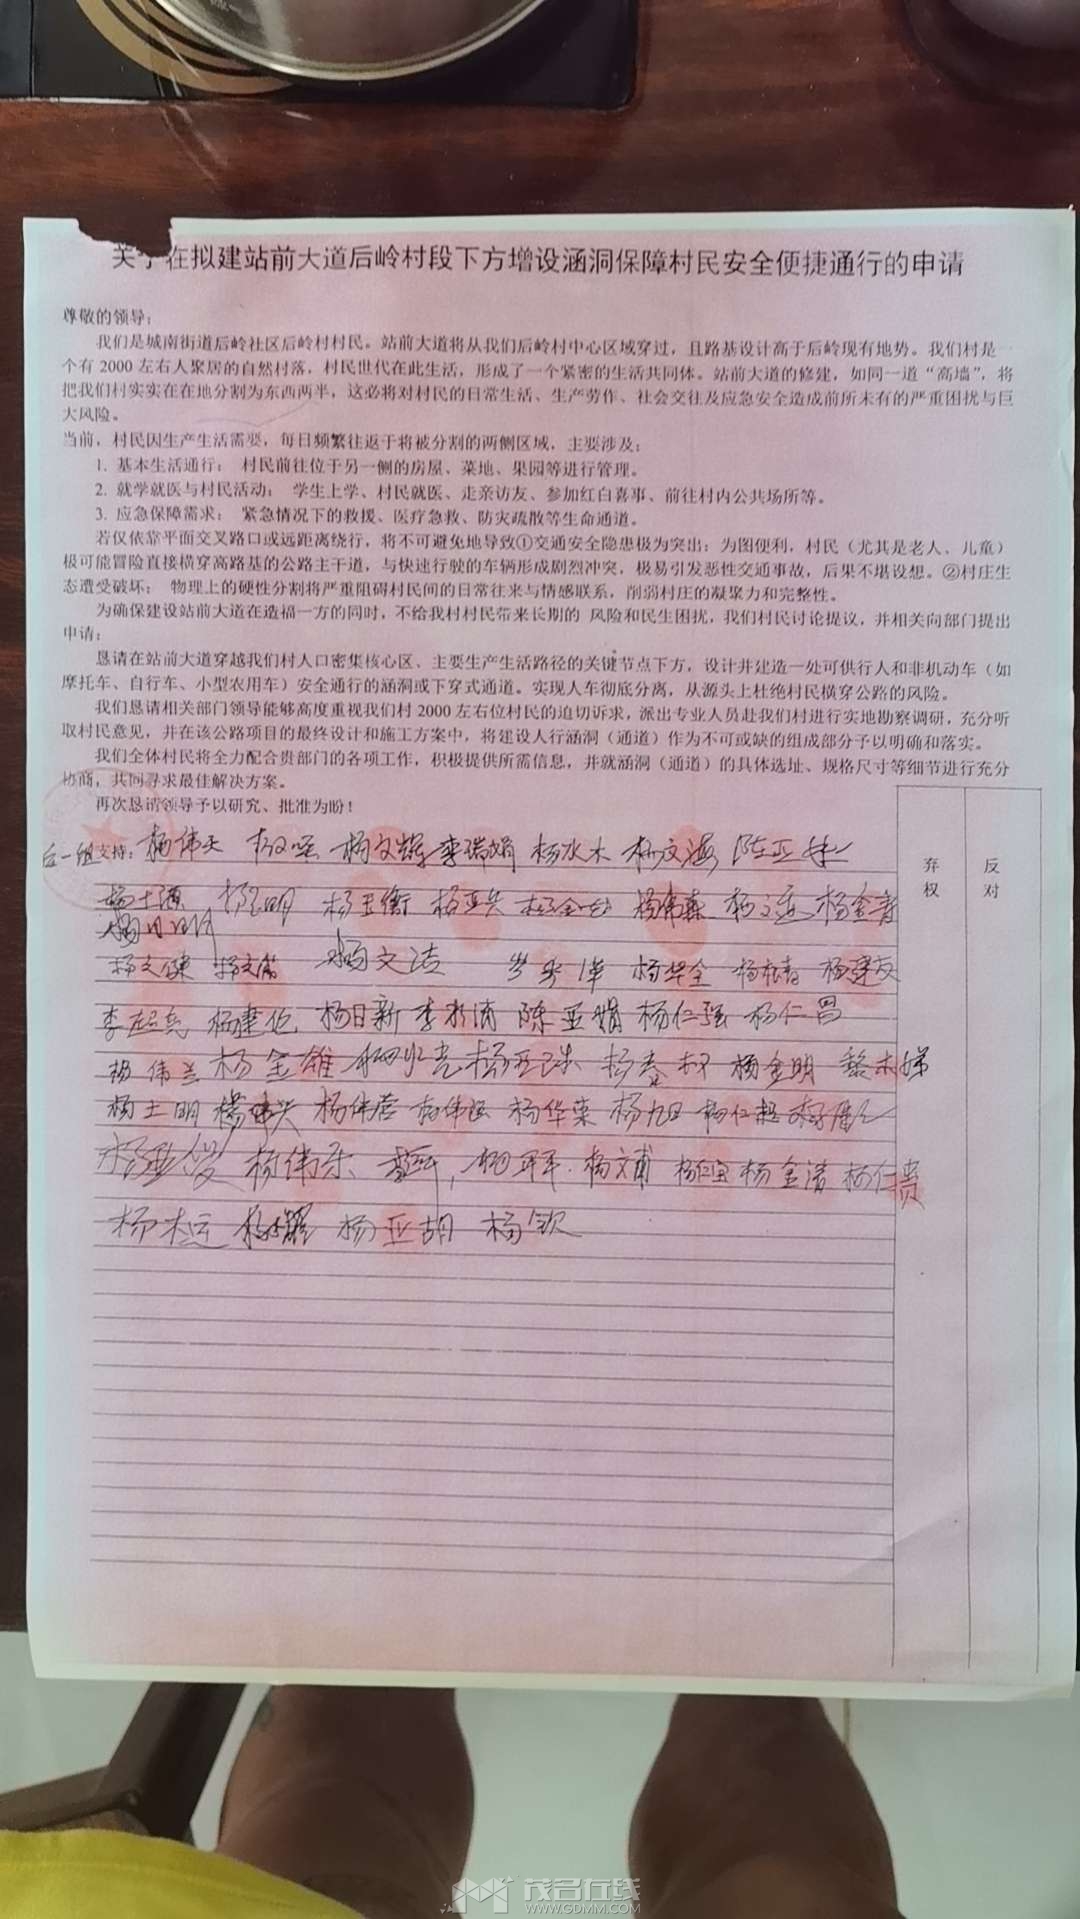 关于在拟建站前大道后岭村段下方增设涵洞保障村民安全便捷通行的申请
尊敬的领导：
我们是城南街道后岭社区后岭村村民。站前大道将从我们后岭村中心区域穿过，且路基设计高于后岭现有地势。我们村是一
个有 2000 左右人聚居的自然村落，村民世代在此生活，形成了一个紧密的生活共同体。站前大道的修建，如同一道“高墙”，将
把我们村实实在在地分割为东西两半，这必将对村民的日常生活、生产劳作、社会交往及应急安全造成前所未有的严重困扰与巨
大风险。
当前，村民因生产生活需要，每日频繁往返于将被分割的两侧区域，主要涉及：
1. 基本生活通行： 村民前往位于另一侧的房屋、菜地、果园等进行管理。
2. 就学就医与村民活动： 学生上学、村民就医、走亲访友、参加红白喜事、前往村内公共场所等。
3. 应急保障需求： 紧急情况下的救援、医疗急救、防灾疏散等生命通道。
若仅依靠平面交叉路口或远距离绕行，将不可避免地导致①交通安全隐患极为突出：为图便利，村民（尤其是老人、儿童）
极可能冒险直接横穿高路基的公路主干道，与快速行驶的车辆形成剧烈冲突，极易引发恶性交通事故，后果不堪设想。②村庄生
态遭受破坏： 物理上的硬性分割将严重阻碍村民间的日常往来与情感联系，削弱村庄的凝聚力和完整性。
为确保建设站前大道在造福一方的同时，不给我村村民带来长期的 风险和民生困扰，我们村民讨论提议，并相关向部门提出
申请：
恳请在站前大道穿越我们村人口密集核心区、主要生产生活路径的关键节点下方，设计并建造一处可供行人和非机动车（如
摩托车、自行车、小型农用车）安全通行的涵洞或下穿式通道。实现人车彻底分离，从源头上杜绝村民横穿公路的风险。
我们恳请相关部门领导能够高度重视我们村 2000 左右位村民的迫切诉求，派出专业人员赴我们村进行实地勘察调研，充分听
取村民意见，并在该公路项目的最终设计和施工方案中，将建设人行涵洞（通道）作为不可或缺的组成部分予以明确和落实。
我们全体村民将全力配合贵部门的各项工作，积极提供所需信息，并就涵洞（通道）的具体选址、规格尺寸等细节进行充分
协商，共同寻求最佳解决方案。
再次恳请领导予以研究、批准为盼！
弃权 反对
后一组支持： 杨伟天 杨文辉 李瑞娟 杨水木 杨文海
杨亚兵 杨伟森
杨文健 杨文洁 杨华全 杨建友
杨建伦 杨日新 陈亚娟 杨仁强 杨仁昌
杨伟兰 杨金雄 杨金明 黎木娣
杨土明 杨华荣 杨旭日
杨伟乐 杨文甫 杨仁宝 杨金清 杨仁贵
杨亚胡 杨钦
茂名在线
WWW.GDMM.COM